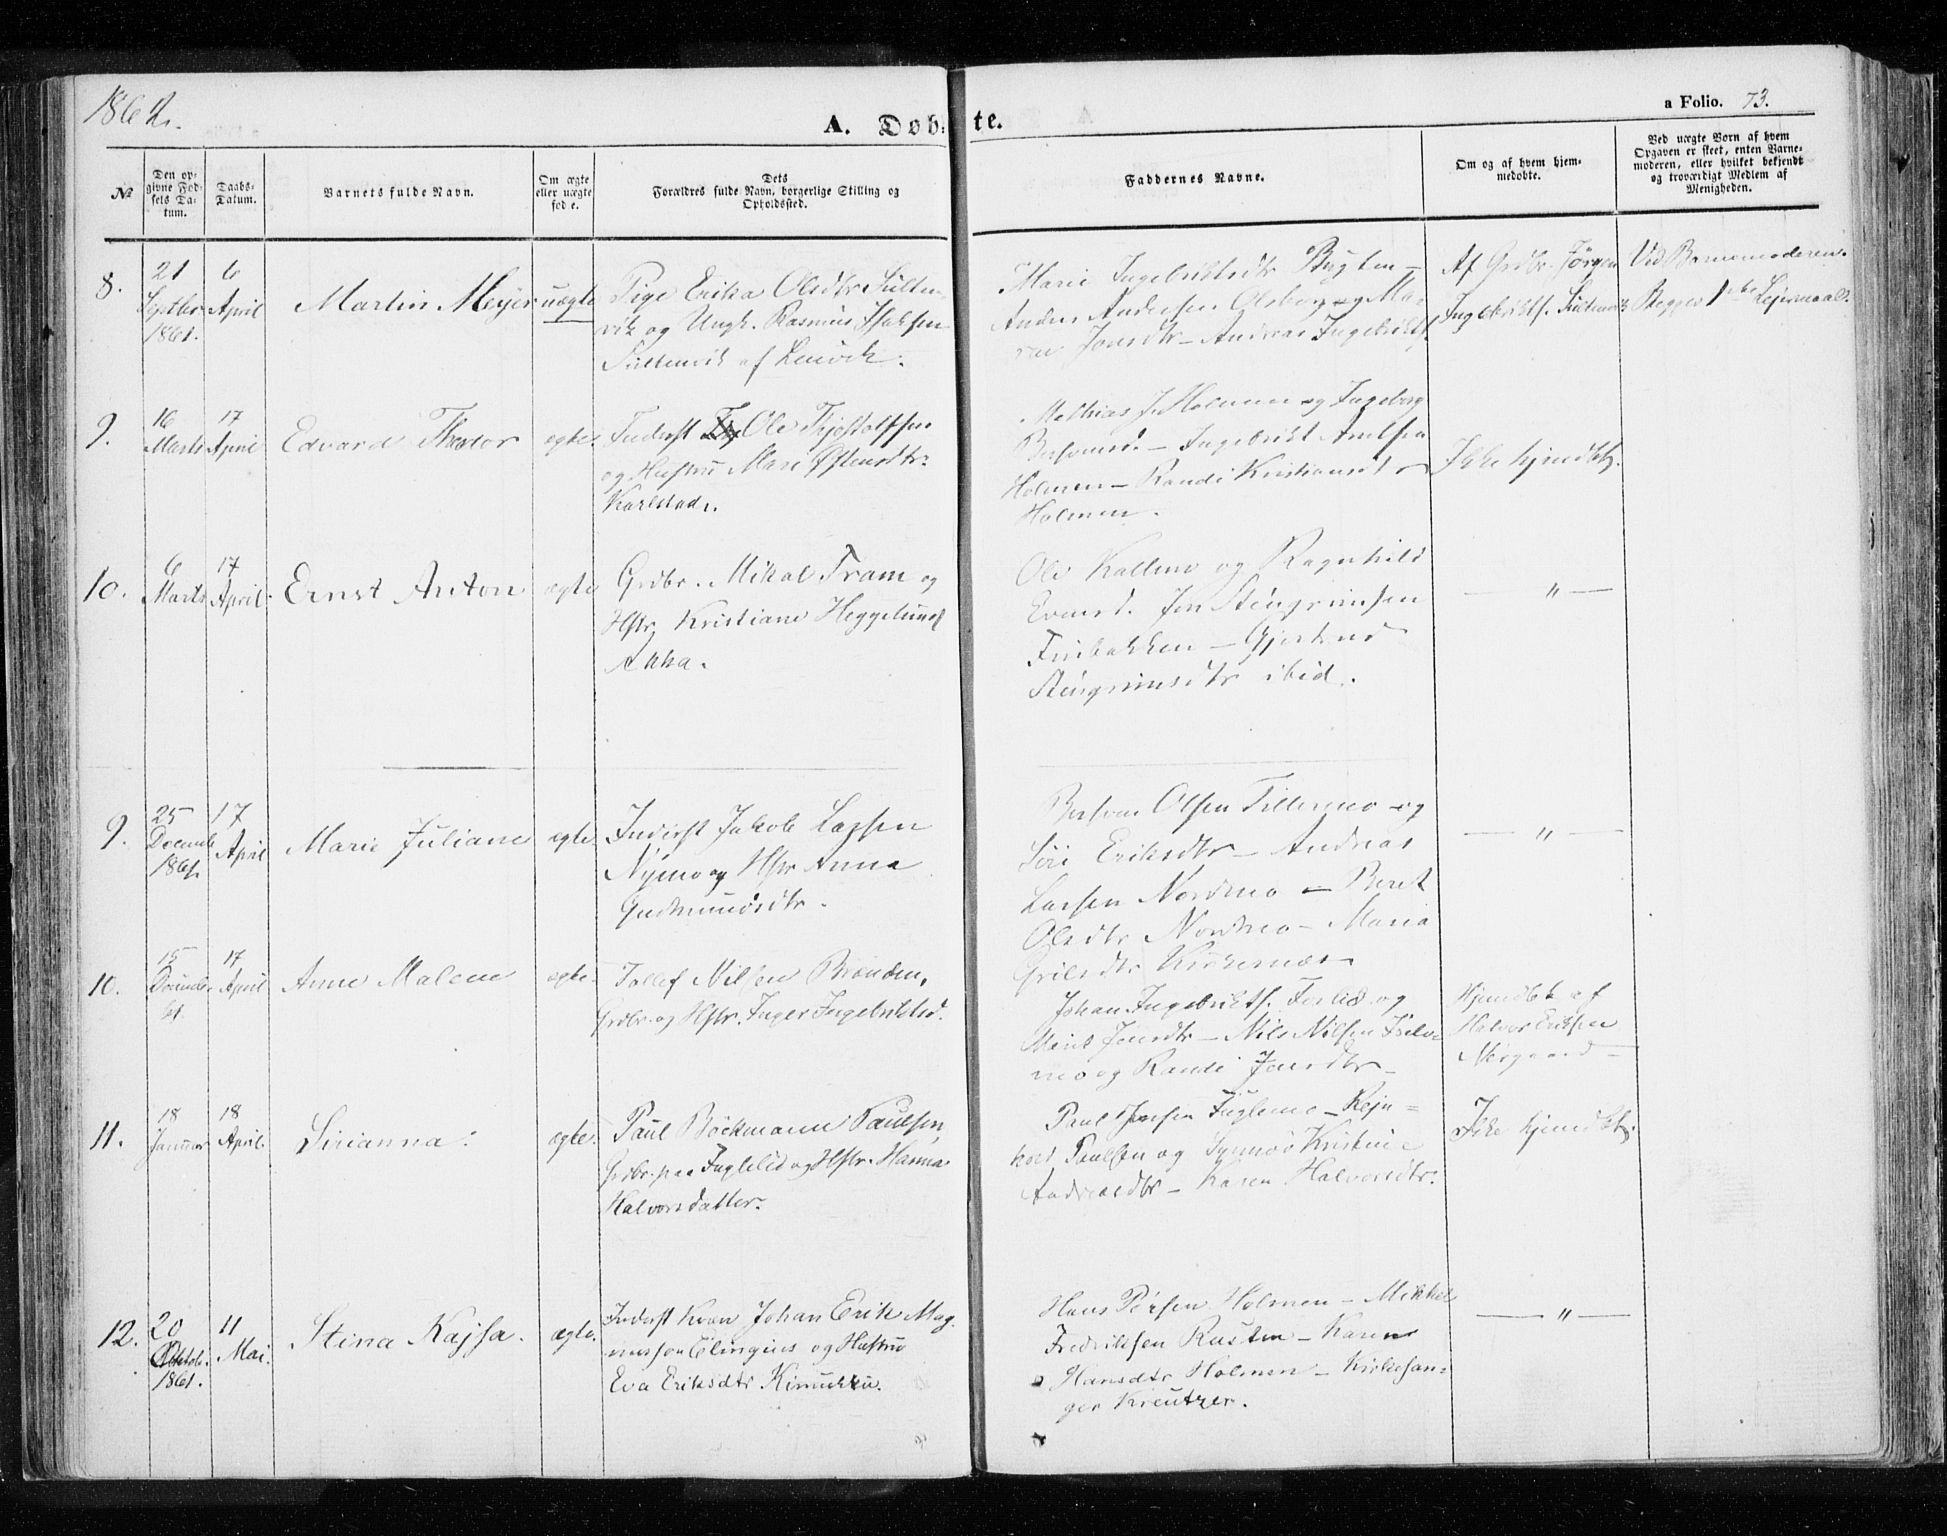 1862.
A. Døb-te.
a Folio. 73.
№
Den opgivne Fødsels Datum.
Daabs-Datum.
Barnets fulde Navn.
Om ægte eller uægte fød e.
Dets Forældres fulde Navn, borgerlige Stilling og Opholdssted.
Faddernes Navne.
Om og af hvem hjemmedøbte.
Ved uægte Børn af hvem Opgaven er skeet, enten Barnemoderen, eller hvilket bekjendt og troværdigt Medlem af Menigheden.
8.
21
Septbr
1861.
6
April
Martin Mejer
uægte
Pige Erika Olsdtr
og Ungk. Rasmus Isaksen
af Lenvik.
Marie Ingebriktsdtr
Anders Andersen Olsborg og Ma-
ren Jonsdtr – Andreas Ingebrikts.
Af Grdbr. Jørgen
Ingebrikts.
Ved Barnemoderen.
Begges 1ste Lejermaal.
9.
16
Marts
17
April
Edvard Theodor
ægte.
Inderst Ole Tjostolfsen
og Hustru Mari Østensdtr.
Karlstad.
Mathias J. Holmen og Ingeborg
– Ingebrikt
Holmen – Randi Kristiansdt
Holmen.
Ikke hjemdbt.
10.
6
Marts
17
April.
Ernst Anton
ægte
Grdbr. Mikal Fram og
Hstr Kristiane Heggelund
Akka.
Ole og Ragnhild
Evensd. Jon Stengrimsen
Finbakken – Gjertrud
Stengrimsdtr ibid.
— " —
9.
25
Decembr
1861.
17
April
Marie Juliane
ægte.
Inderst Jakob Larsen
Nymo og Hstr Anna
Gudmundsdtr.
Olsen og
Siri Eriksdtr – Andreas
Larsen Nordmo – Beret
Olsdtr Nordmo – Maria
Kirkesnæs
— " —
10.
15
Decembr
61.
17
April
Anne Malene
ægte.
Tollef Nilsen Brænden,
Grdbr. og Hstr. Inger Ingebriktsd.
Johan Ingebrikts. og
Marit Jonsdtr – Nils Nilsen
mo og Randi Jonsdtr –
Hjemdbt af
Halvor Eriksen
Mosgaard –
11.
18
Januar
18
April.
Sirianna.
ægte.
Paul Böckmann Paulsen,
Grdbr. paa Fuglelid og Hstr. Hanna
Halvorsdatter.
Paul Jensen Fuglemo – Rejn-
hort Paulsen og Synnøv Kristine
Andreasdtr – Karen Halvorsdtr.
Ikke hjemdbt.
12.
20
Oktobr.
1861.
11
Mai.
Stina Kajsa.
ægte.
Inderst Kvæn Johan Erik Mag-
nusson og Hustru
Eva Eriksdtr
Hans Persen Holmen – Mikkel
Fredriksen Rusten – Karen
Hansdtr Holmen – Kirkesan-
ger Kreutzer.
— " —